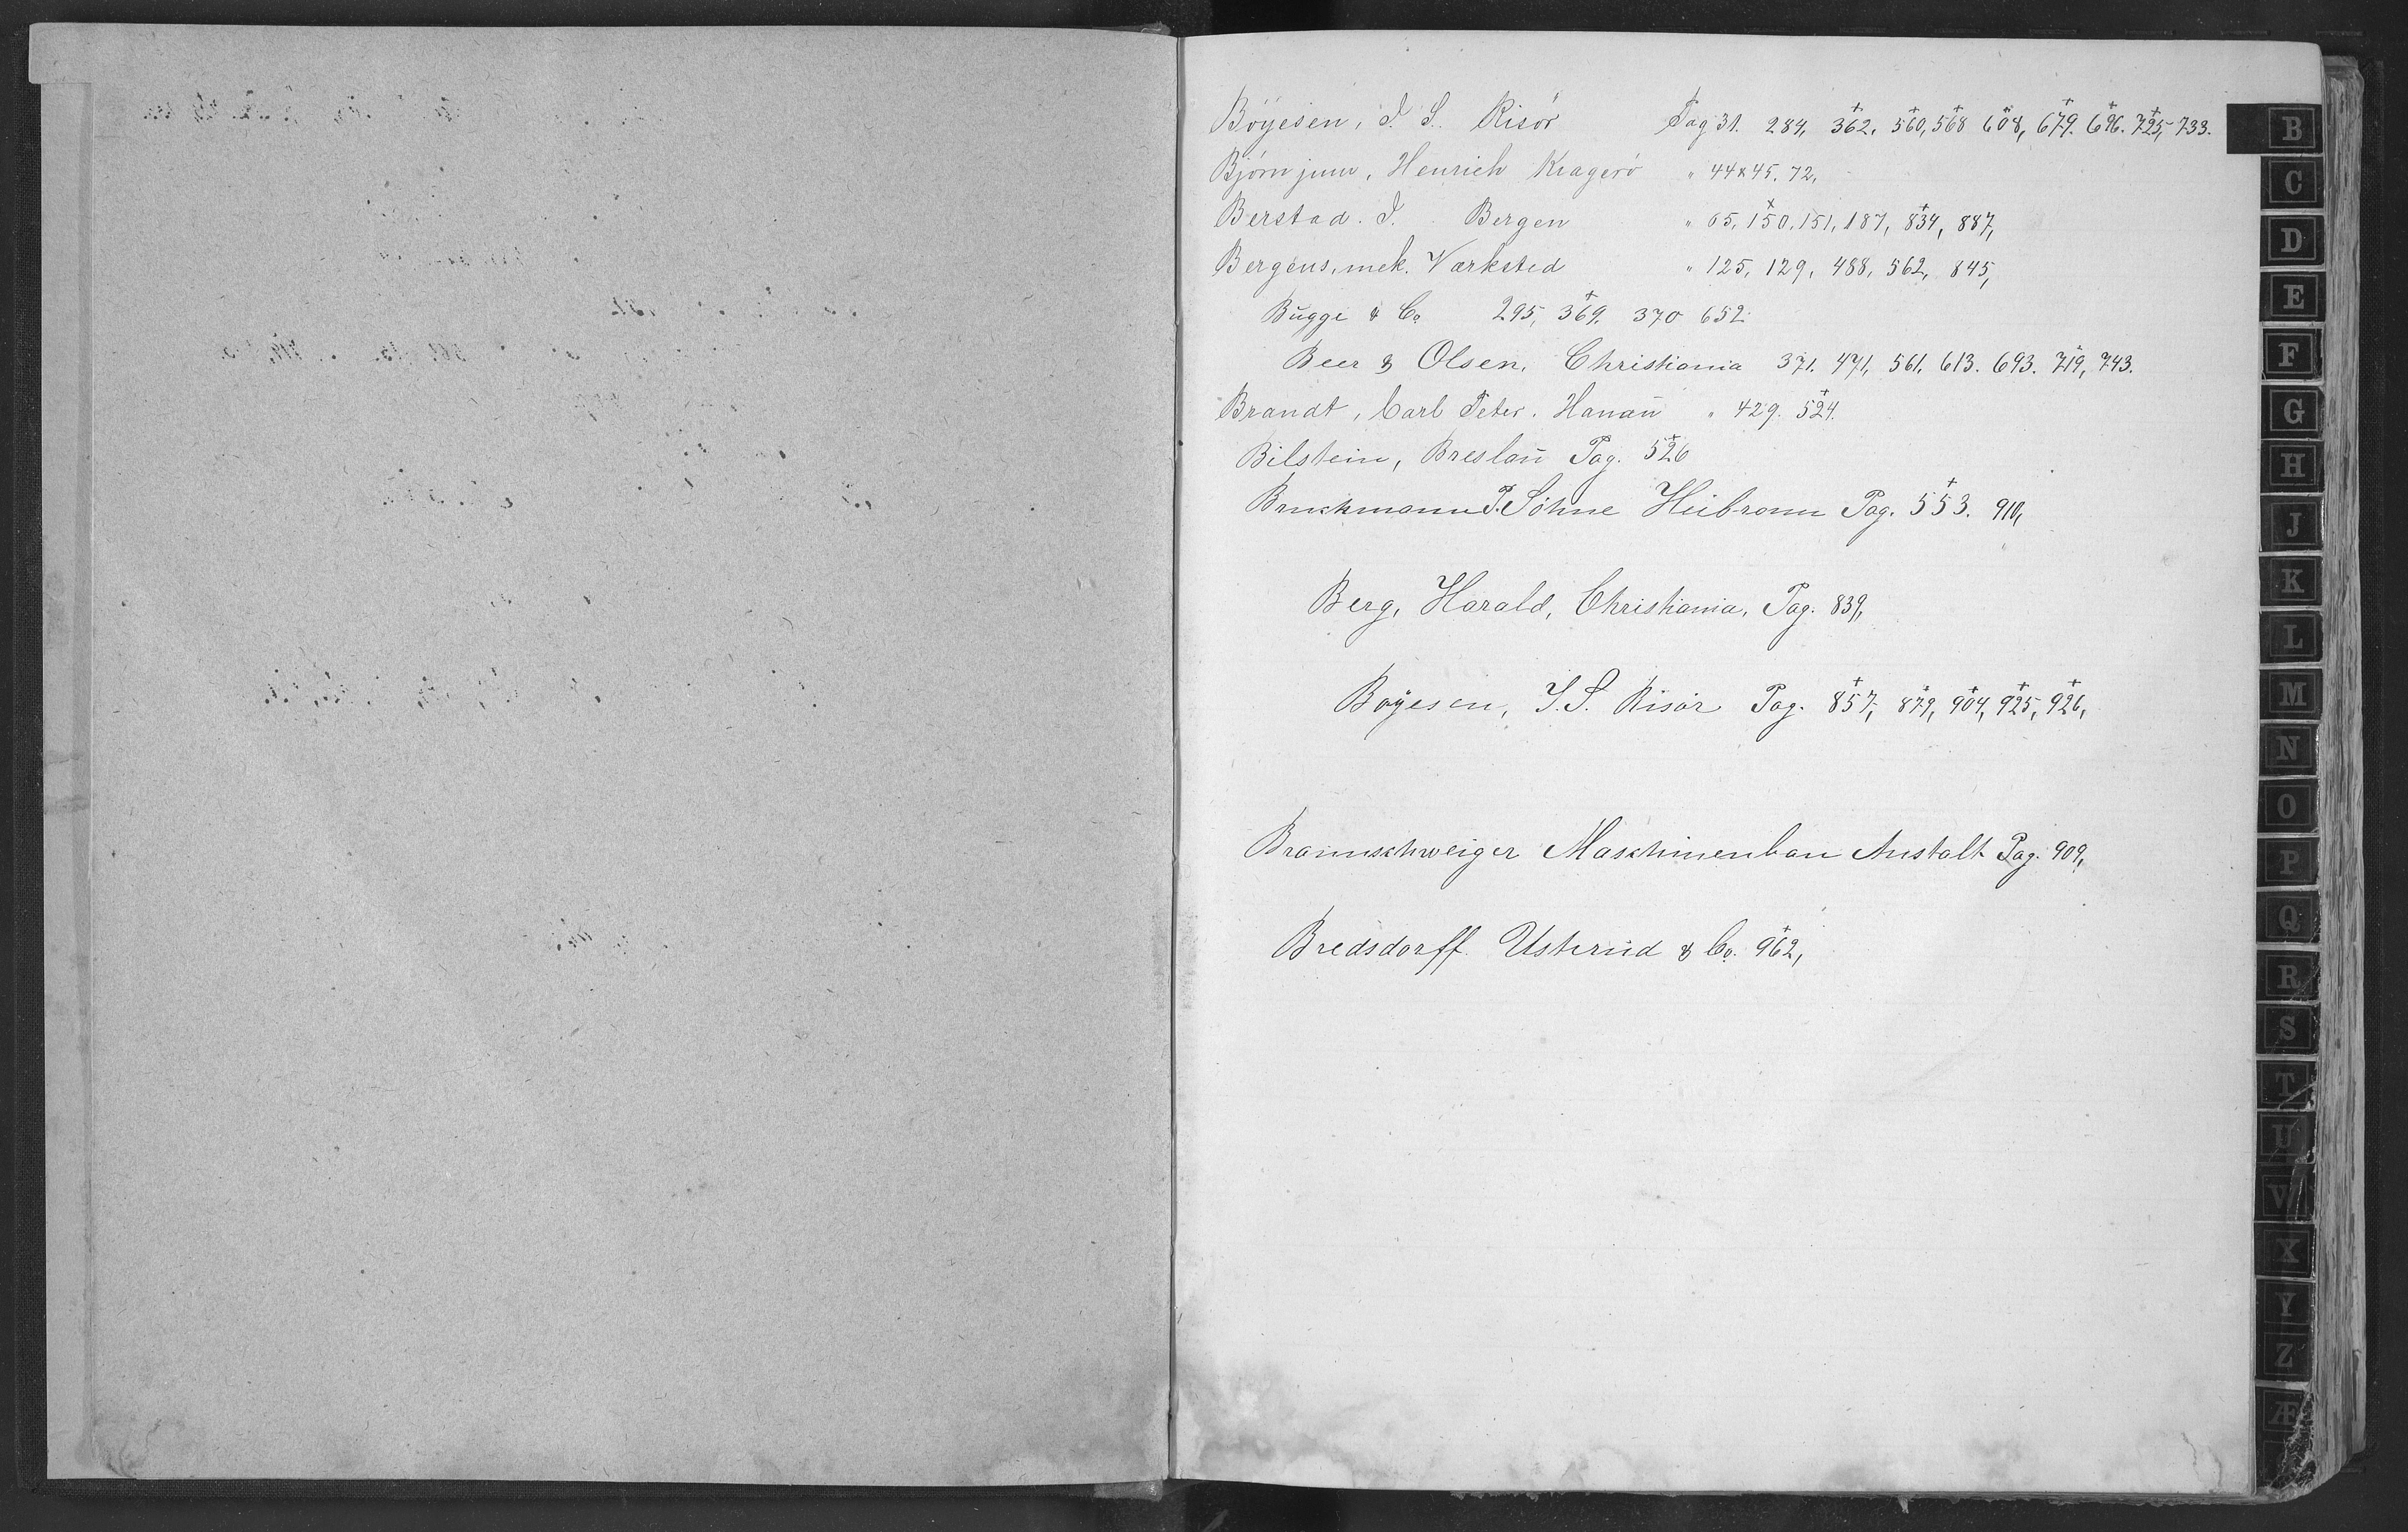 Böyesen, I. S. Risör Pag 31. 284, 362, 560, 568 608, 679. 696. 725, 733.
Björn junr, Henrich Kragerö " 44 & 45. 72,
Berstad. I. Bergen " 65, 150, 151, 187, 834, 887,
Bergens, mek. Værksted " 125, 129, 488, 562, 845,
Bugge & Co 295, 369. 370 652
Beer & Olsen, Christiania 371. 471, 561, 613. 693. 719, 743.
Brandt, Carl Peter. Hanau " 429. 524.
Bilstein, Breslau Pag. 526
Bruckmann P. Söhne Heibronn Pag. 553. 910,
Berg, Harald, Christiania, Pag. 839,
Boyesen, I. S. Risör Pag. 857, 879, 904, 925, 926,
Braunschweiger Maschinenbau Anstalt Pag. 909,
Bredsdorff. Usterud & Co. 962,
B
C
D
E
F
G
H
J
K
L
M
N
O
P
Q
R
S
T
U
V
X
Y
Z
Æ